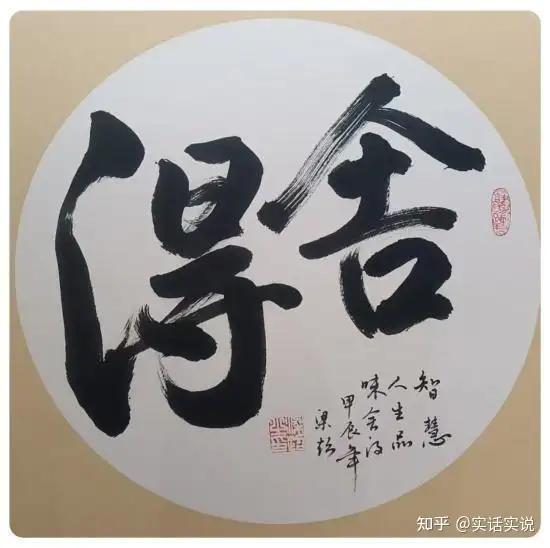 舍得
智慧
人生品
味舍得
甲辰年
梁
知乎 @实话实说